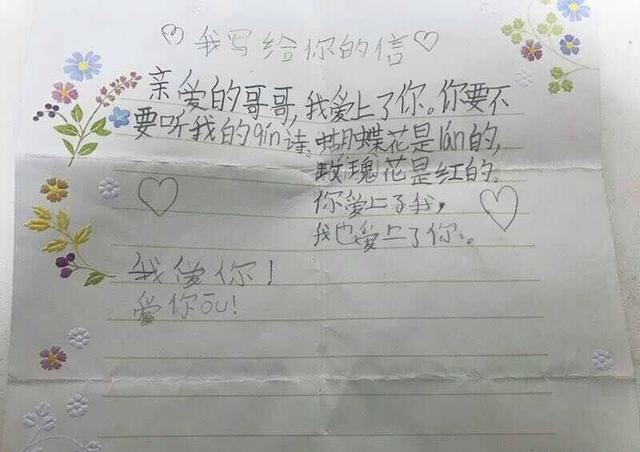 我写给你的信
亲爱的哥哥,我爱上了你。你要不
要听我的qín诗。蝴蝶花是lán的,
玫瑰花是红的。
你爱上了我,
我也爱上了你。
我爱你!
爱你ōu!